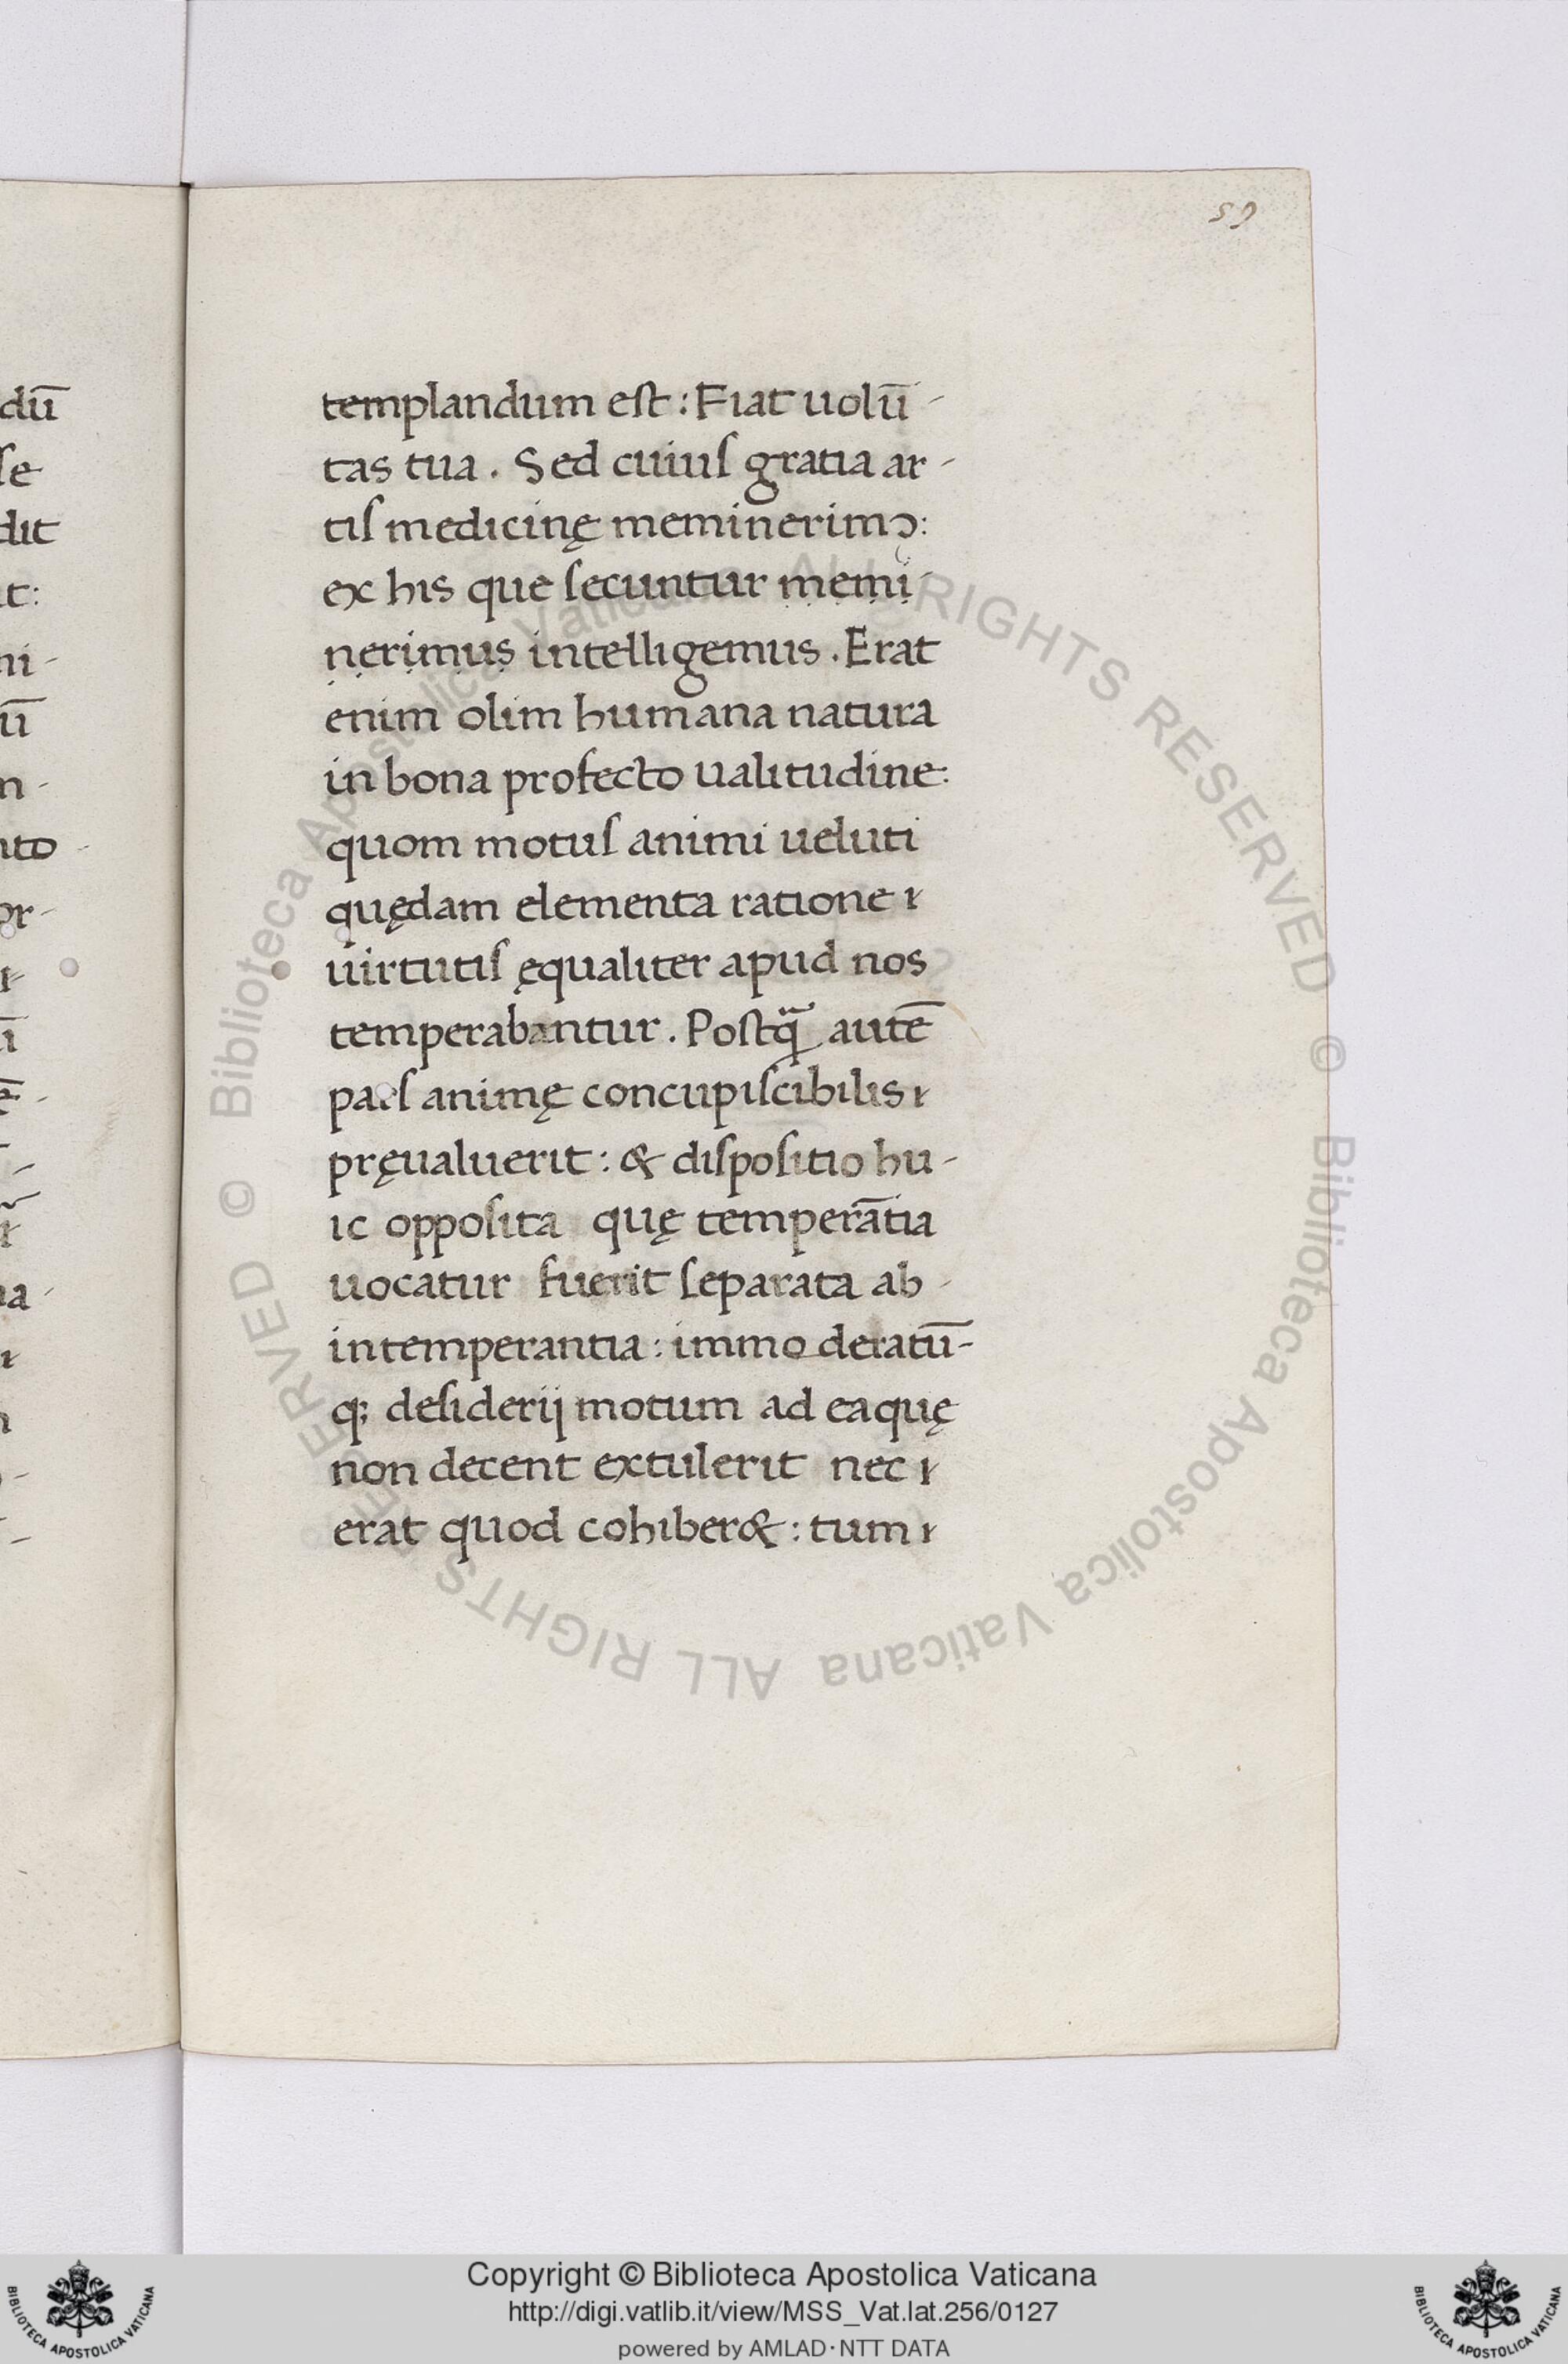 59
templandum est : Fiat uolū-
tas tua . Sed cuiuſ gratia ar-
tiſ medicinę meminerimꝰ:
ex his que ſecuntur ṃeṃị-
ṇeṛịṃụṣ intelligemus . Erat
enim olim humana natura
in bona profecto ualitudine:
quom motuſ animi ueluti
quędam elementa ratione ı
uirtutiſ ęqualiter apud nos
temperabantur . Poſtq̃ autē
parſ animę concupiſcibilis ı
pręualuerit : & diſpoſitio hu-
ic oppoſita quę temperātia
uocatur fuerit ſeparata ab-
intemperantia : immoderatū-
q; deſiderij motum ad ea quę
non decent extulerit nec ı
erat quod cohiber& : tum ı
dū
ſe
dit
t:
ni-
ū
n-
nto-
or-
ē-
na-
Biblioteca Apostolica Vaticana ALL RIGHTS RESERVED © Biblioteca Apostolica Vaticana ALL RIGHTS RESERVED ©
Copyright © Biblioteca Apostolica Vaticana
http://digi.vatlib.it/view/MSS_Vat.lat.256/0127
powered by AMLAD·NTT DATA
BIBLIOTECA APOSTOLICA VATICANA
BIBLIOTECA APOSTOLICA VATICANA